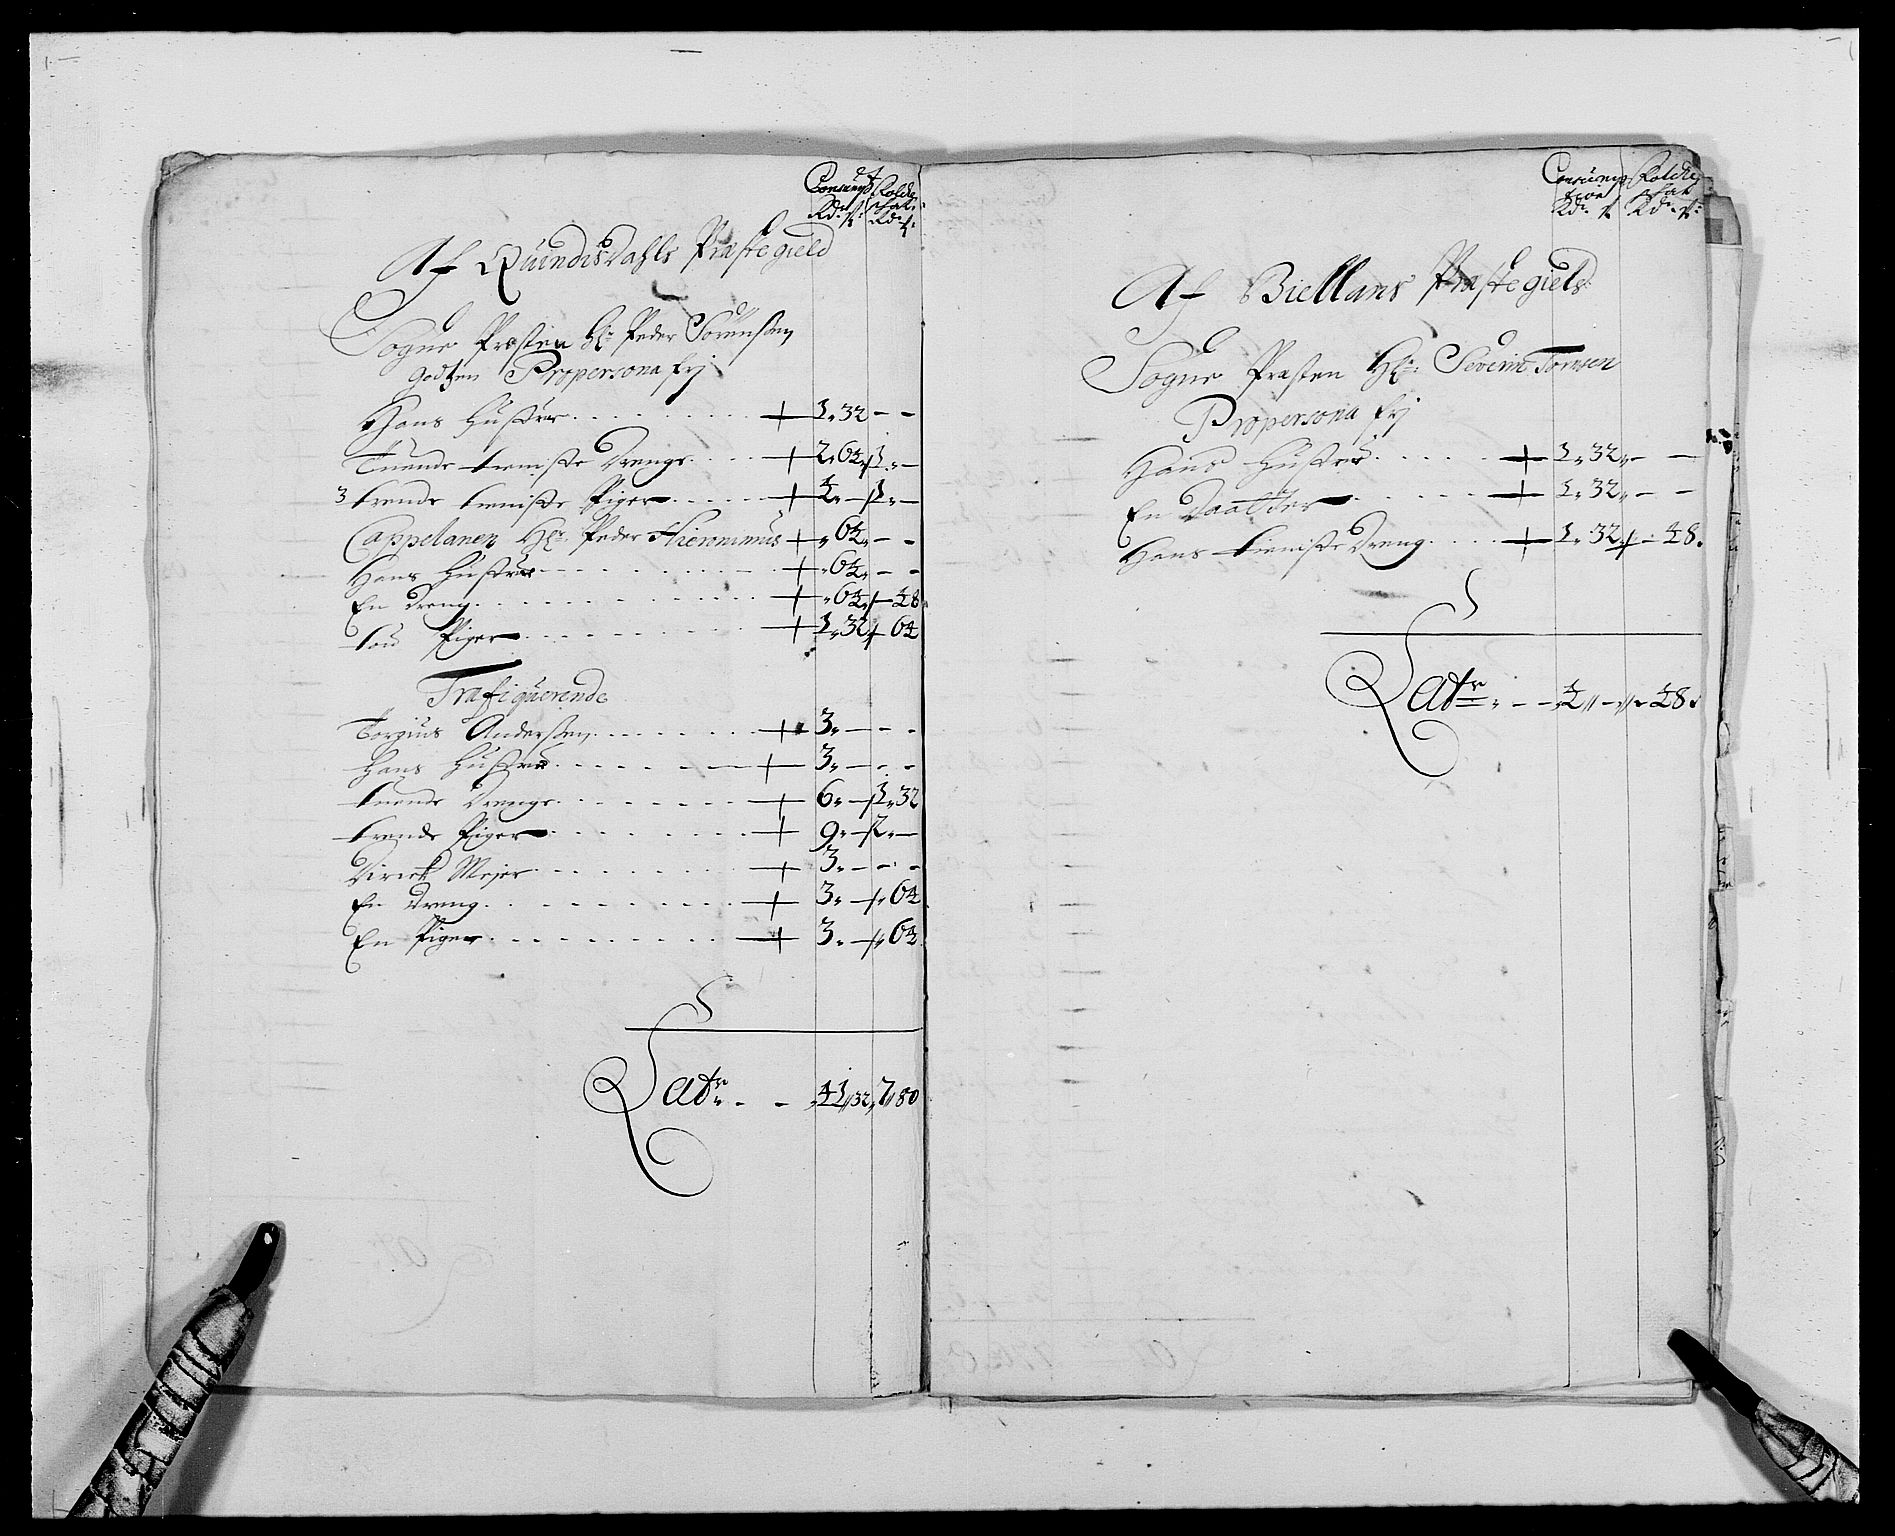 Consumpt Folcke
schat
Rdr ß Rdr ß
Af Quindisdahls Præstegield
Sogne Præsten Hr: Peder Sörensen
Godtzen Propersona frj
Hans Hustrue + 1. 32 - -
Tuende tieniste Drenge + 2. 64. 1. -
3 trende tieniste Piger + 4. - 1. -
Cappelanen Hr: Peder Hieronimus + . 64. - -
Hans Hustrue + . 64. - -
En Dreng + . 64. - 48
tou Piger + 1. 32. 64
Trafiquerende
Torgius Andersen + 3. - - -
Hans Hustrue + 3. - - -
tuende Drenge + 6. - 1. 32
trende Piger + 9. - 2. -
Dirick Mejer + 3. - - -
En Dreng + 3. - . 64
En Piger + 3. - . 64
Latr: - - 41 32 7 80
Consump Folcke
tion schat
Rdr ß Rdr ß
Af Biellans Præstegield
Sogne Præsten Hr: Severin Tomsen
Propersona frj
Hans Hustrue + 1. 32. - -
En Daatter + 1. 32. - -
Hans tieniste Dreng + 1. 32. - 48.
Latr - - 4 - 48.